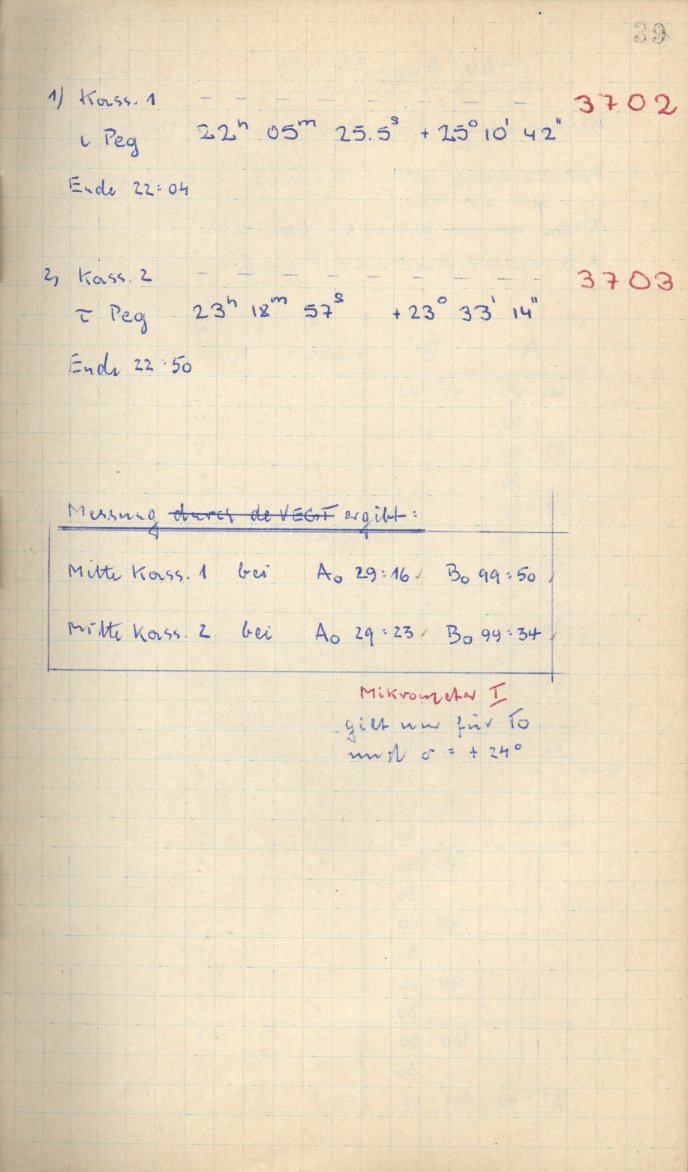 39
1) Kass. 1 – – – – – – – – 3702
ι Peg 22h 05m 25.5s + 25° 10' 42"
Ende 22:04
2) Kass. 2 – – – – – – – – 3703
τ Peg 23h 18m 57s + 23° 33' 14"
Ende 22:50
Messung durch de VEGT ergibt:
Mitte Kass. 1 bei A₀ 29:16 B₀ 99:50
Mitte Kass. 2 bei A₀ 29:23 B₀ 99:34
Mikrometer I
gilt nur für T₀
und δ = + 24°